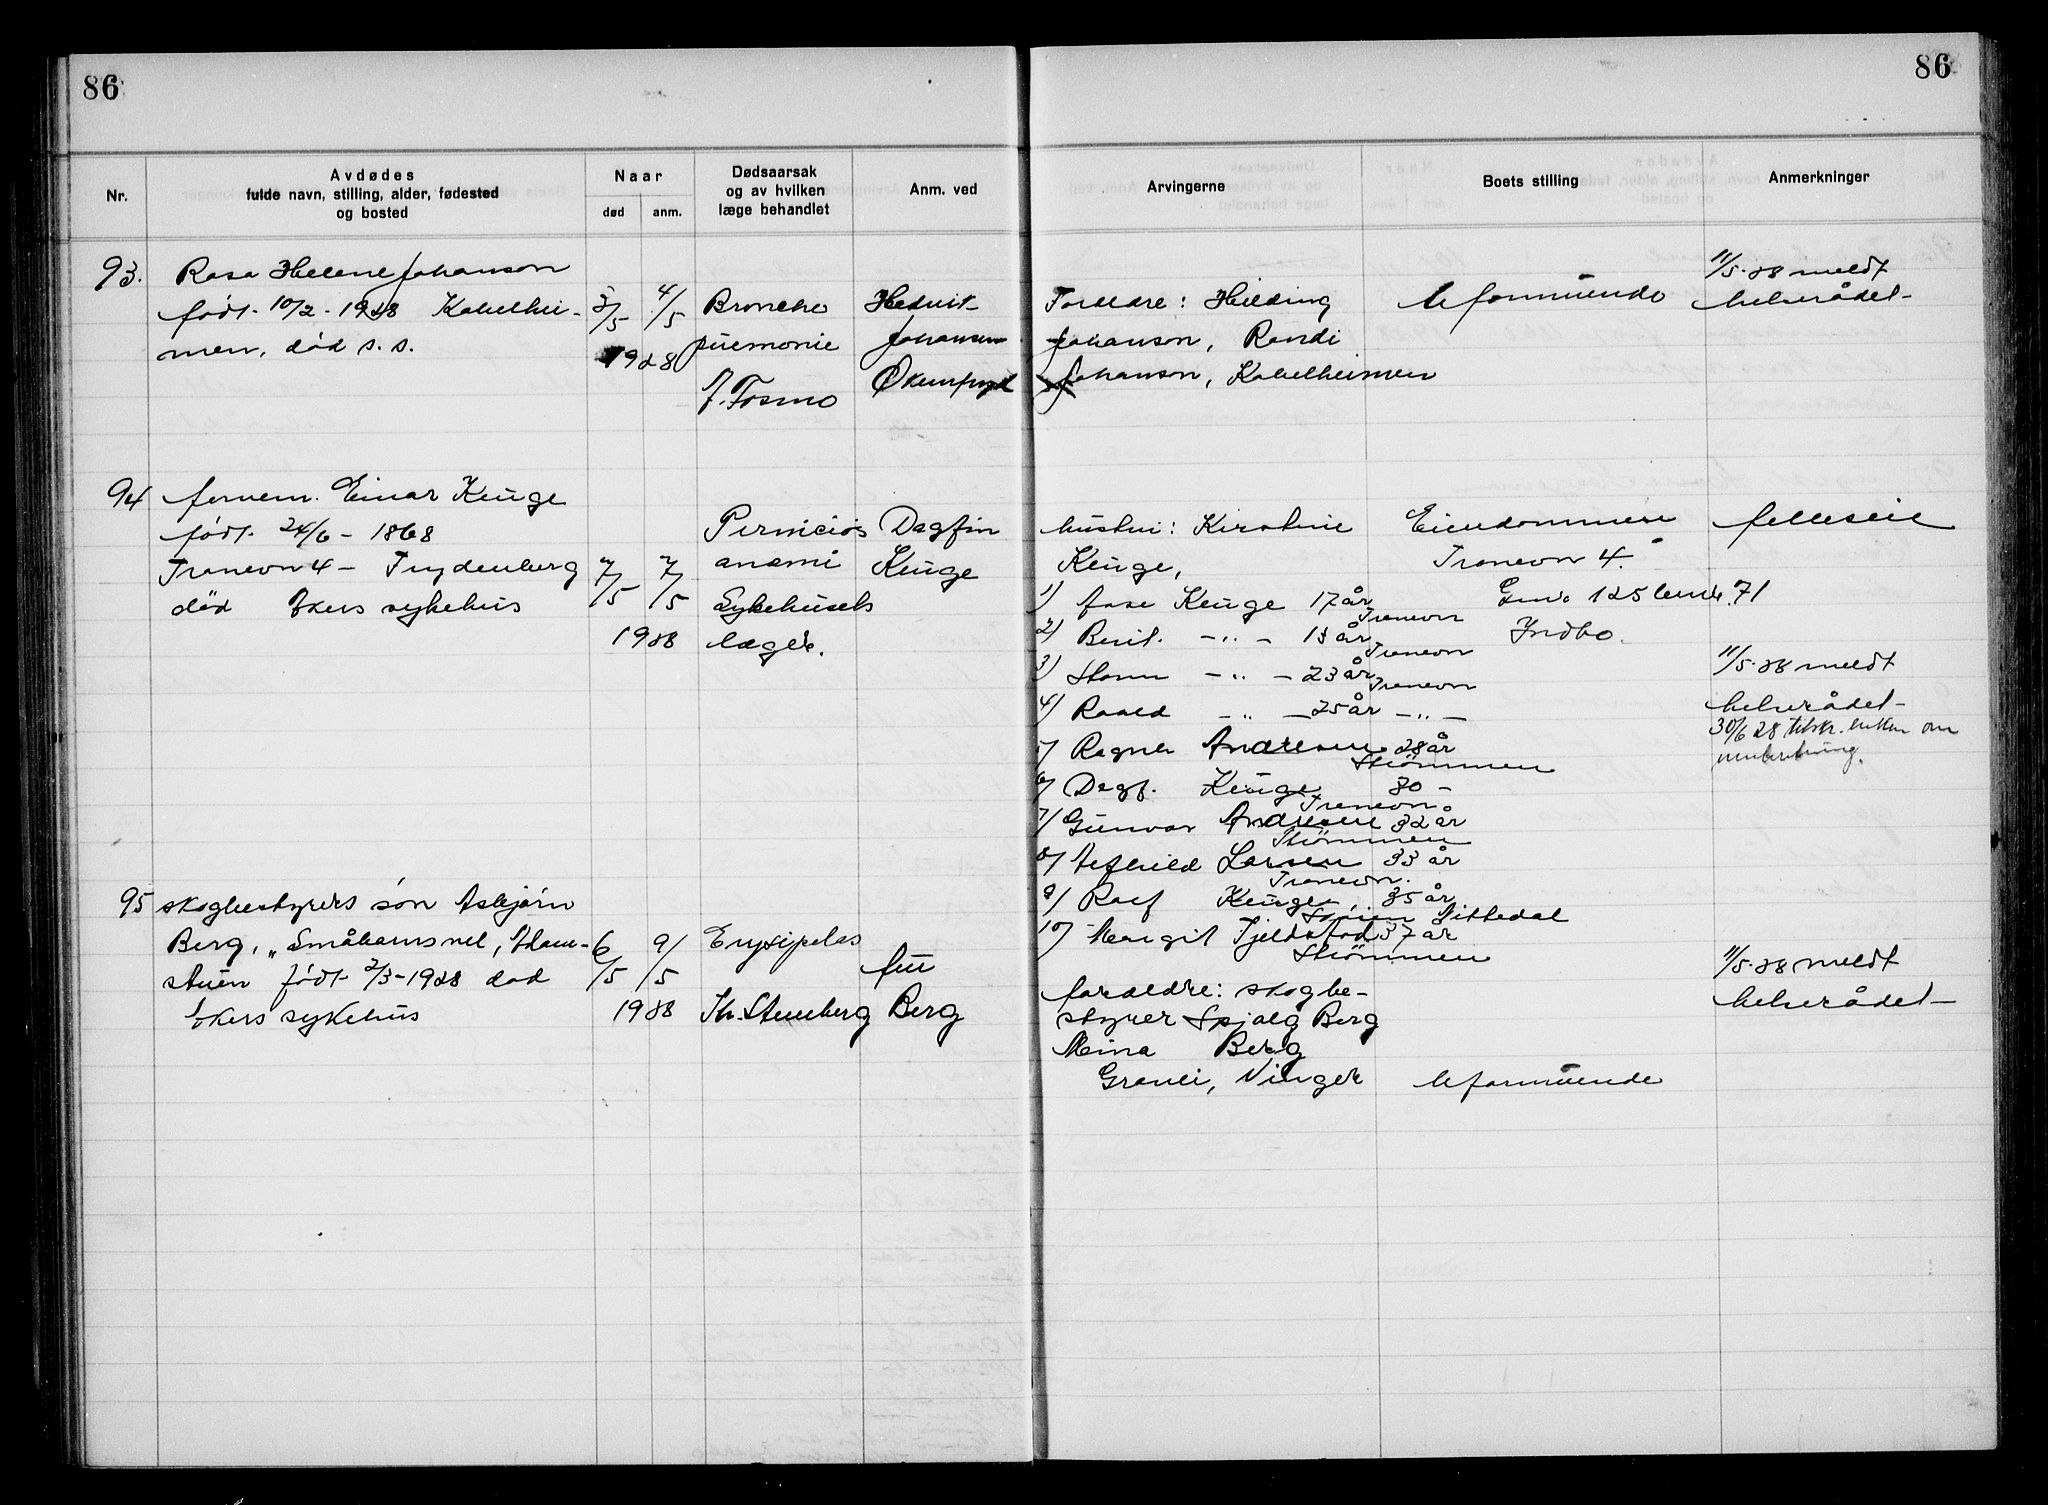 86
86
Nr.
Avdødes
fulde navn, stilling, alder, fødested
og bosted
Naar
død
anm.
Dødsaarsak
og av hvilken
læge behandlet
Anm. ved
Arvingerne
Boets stilling
Anmerkninger
93.
Rosa Helene Johanson
født 10/2 - 1928 Kabelhei-
men, død s. s.
3/5 4/5
1928
Broncho
pnemonie
J. Tosmo
Hedvit
Johansen
Foreldre: Hilding
Johanson, Randi
Johanson, Kabelheimen
Uformuende
11/5-28 meldt
helserådet
94
formem. Einar Kruge
født 24/6 - 1868
Tronevn 4 - Frydenberg
død Akers sykehus
7/5 7/5
1928
Perniciøs
anæmi
Sykehusets
læger.
Dagfin
Kruge
hustru: Kirstine
Kruge,
1) Aase Kruge 17 år
Tronevn
2) Berit -"- 15 år
Tronevn
3) -"- 23 år
Tronevn
4) Roald -"- 25 år -"-
5) Ragna Andresen 28 år
Strømmen
6) Dagf. Kruge 30 -
Tronevn
7) Gunvor Andresen 32 år
Strømmen
8) Alfhild Larsen 33 år
Tronevn.
9) Rolf Kruge, 35 år
Nittedal
10) Margit Fjeldstad 37 år
Strømmen
Eiendommen
Tronevn 4.
Gno 125 brno. 71
Indbo.
felleseie
11/5-28 meldt
helserådet
30/6 28 tilskr. enken om
95
skogbestyrers søn Asbjørn
Berg, "Småbarnsvel, Adam-
stuen født 2/3-1928 død
Akers sykehus
6/5 9/5
1928
Erysipelas
Th. Stenberg
fru
Berg
foreldre: skogbe-
styrer Spjalg Berg
Mina Berg
Granli, Vinger
Uformuende
11/5-28 meldt
helserådet